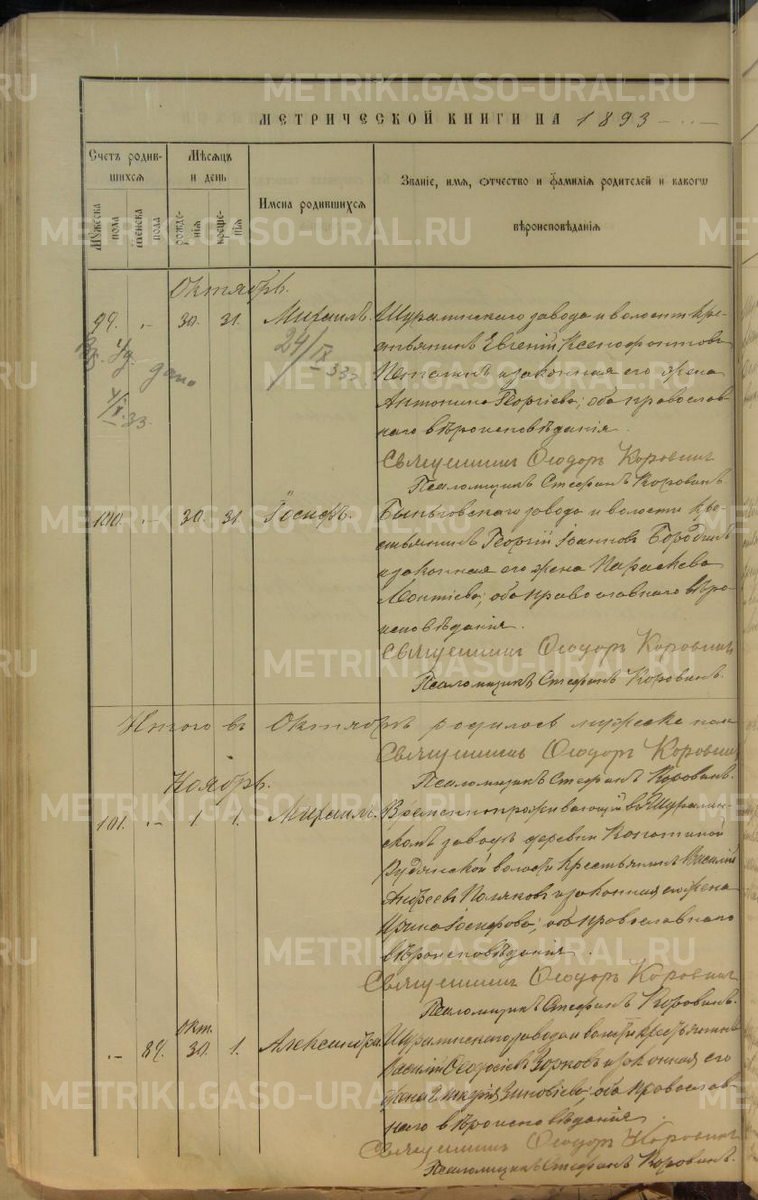 МЕТРИЧЕСКОЙ КНИГИ НА 1893
Счетъ родив-
шихся
Мѣсяцъ
и день
Имена родившихся
Званіе, имя, отчество и фамилія родителей и какого
вѣроисповѣданія
Мужеска
пола
Женска
пола
рожде-
нія
креще-
нія
Октябрь.
99. „ 30. 31. Михаилъ. Шуралинскаго завода и волости кре-
стьянинъ Евгеній Ксенофонтовъ
Потапинъ и законная его жена
Антонина Георгіева; оба православ-
наго вѣроисповѣданія.
дано
24/IX 33
Священникъ Ѳеодоръ Коровинъ
Псаломщикъ Стефанъ Коровинъ
100. „ 30. 31. Іосифъ. Быньговскаго завода и волости кре-
стьянинъ Георгій Іоанновъ Бородинъ
и законная его жена Параскева
Леонтіева; оба православнаго вѣро-
исповѣданія.
Священникъ Ѳеодоръ Коровинъ
Псаломщикъ Стефанъ Коровинъ.
Итого въ Октябрѣ родилось мужеска пола
Священникъ Ѳеодоръ Коровинъ
Псаломщикъ Стефанъ Коровинъ.
Ноябрь.
101. „ 1 1. Михаилъ. Временнопроживающій въ Шуралин-
скомъ заводѣ деревни Конотиной
Рудянской волости крестьянинъ Василій
Андреевъ Поляковъ и законная его жена
Ирина Іосифова; оба православнаго
вѣроисповѣданія.
Священникъ Ѳеодоръ Коровинъ
Псаломщикъ Стефанъ Коровинъ.
Окт.
„ 89. 30. 1. Александра. Шуралинскаго завода и волости крестьянинъ
Василій Ѳеодосіевъ Зорковъ и законная его
жена Гликерія Зиновіева; оба православ-
наго вѣроисповѣданія.
Священникъ Ѳеодоръ Коровинъ
Псаломщикъ Стефанъ Коровинъ.
METRIKI.GASO-URAL.RU